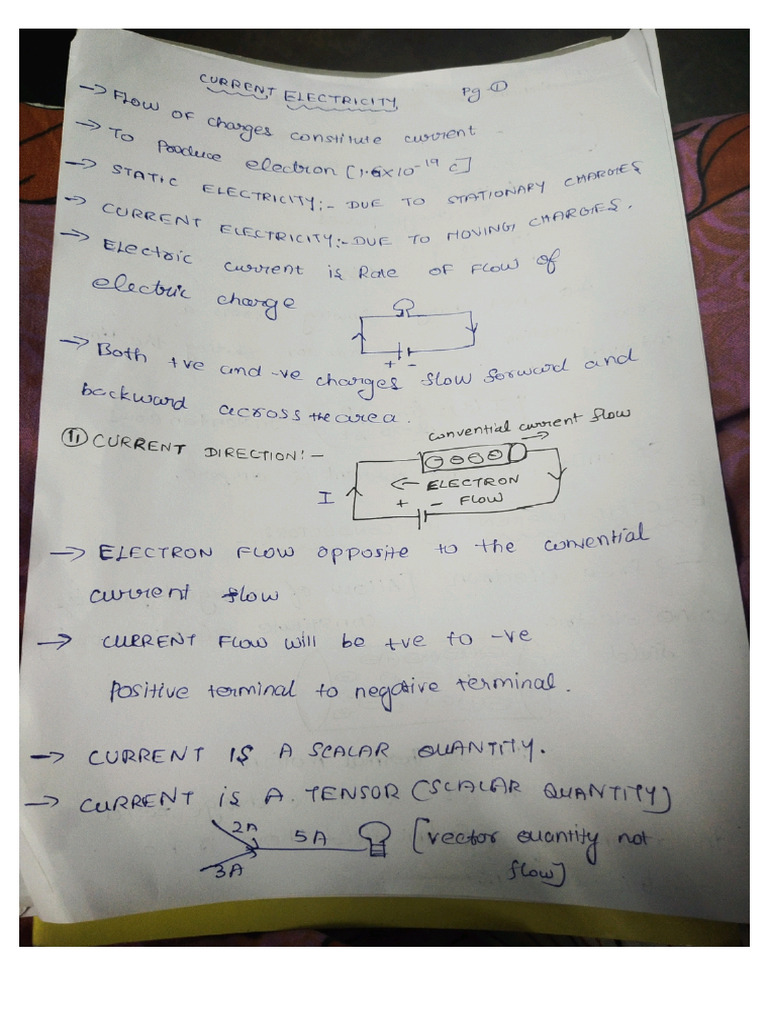 CURRENT ELECTRICITY Pg ①
→ Flow OF charges constitute current
→ To Produce electron [1.6×10⁻¹⁹ C]
→ STATIC ELECTRICITY:- DUE TO STATIONARY CHARGES
→ CURRENT ELECTRICITY:- DUE TO MOVING CHARGES.
→ Electric current is Rate OF FLOW OF
electric charge
+ -
→ Both +ve and -ve charges flow forward and
backward across the area.
convential current flow
① CURRENT DIRECTION:-
← ELECTRON
FLOW
I
+ -
→ ELECTRON FLOW opposite to the convential
current flow
→ CURRENT FLOW will be +ve to -ve
Positive terminal to negative terminal.
→ CURRENT IS A SCALAR QUANTITY.
→ CURRENT is A TENSOR (SCALAR QUANTITY)
2A 5A [vector quantity not
3A flow]